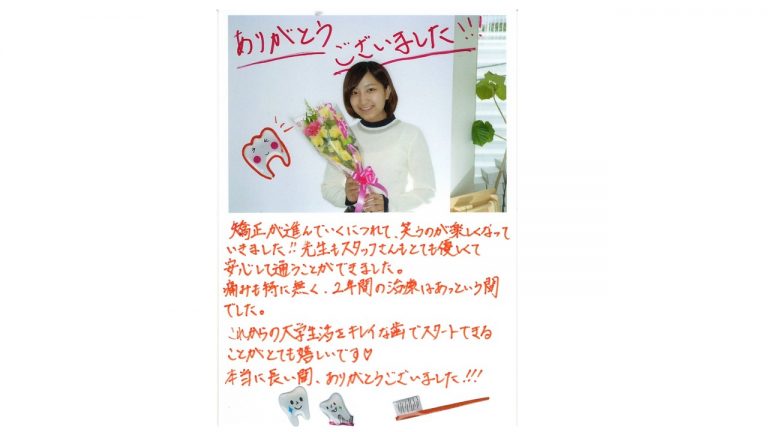 ありがとう
ございました!!!
矯正が進んでいくにつれて、笑うのが楽しくなって
いきました!!先生もスタッフさんもとても優しくて
安心して通うことができました。
痛みも特に無く、2年間の治療はあっという間
でした。
これからの大学生活をキレイな歯でスタートできる
ことがとても嬉しいです♡
本当に長い間、ありがとうございました!!!